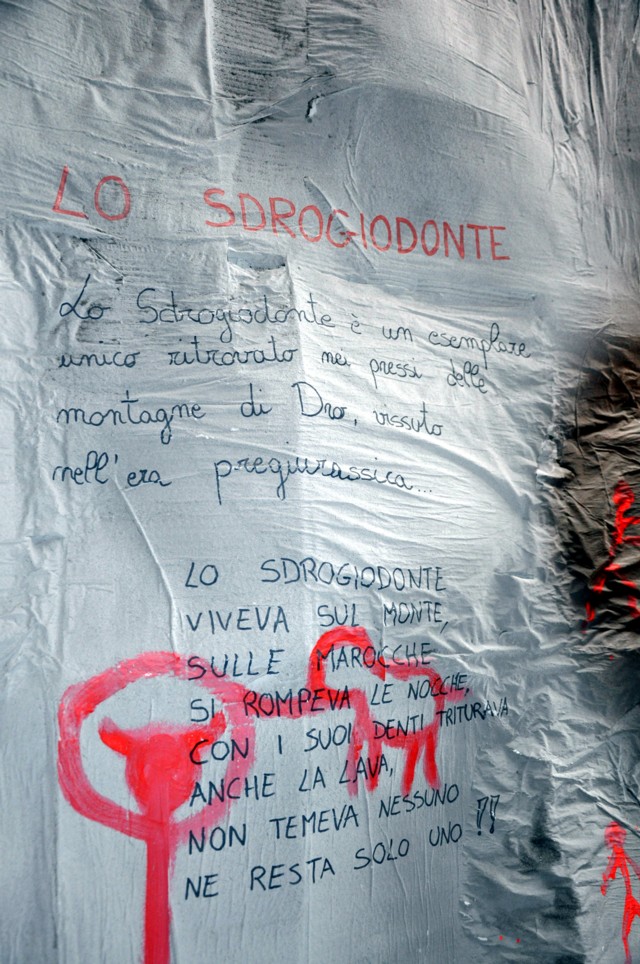 LO SDROGIODONTE
Lo Sdrogiodonte è un esemplare
unico ritrovato nei pressi delle
montagne di Dro, vissuto
nell'era pregiurassica...
LO SDROGIODONTE
VIVEVA SUL MONTE,
SULLE MAROCCHE
SI ROMPEVA LE NOCCHE,
CON I SUOI DENTI TRITURAVA
ANCHE LA LAVA,
NON TEMEVA NESSUNO
NE RESTA SOLO UNO !!